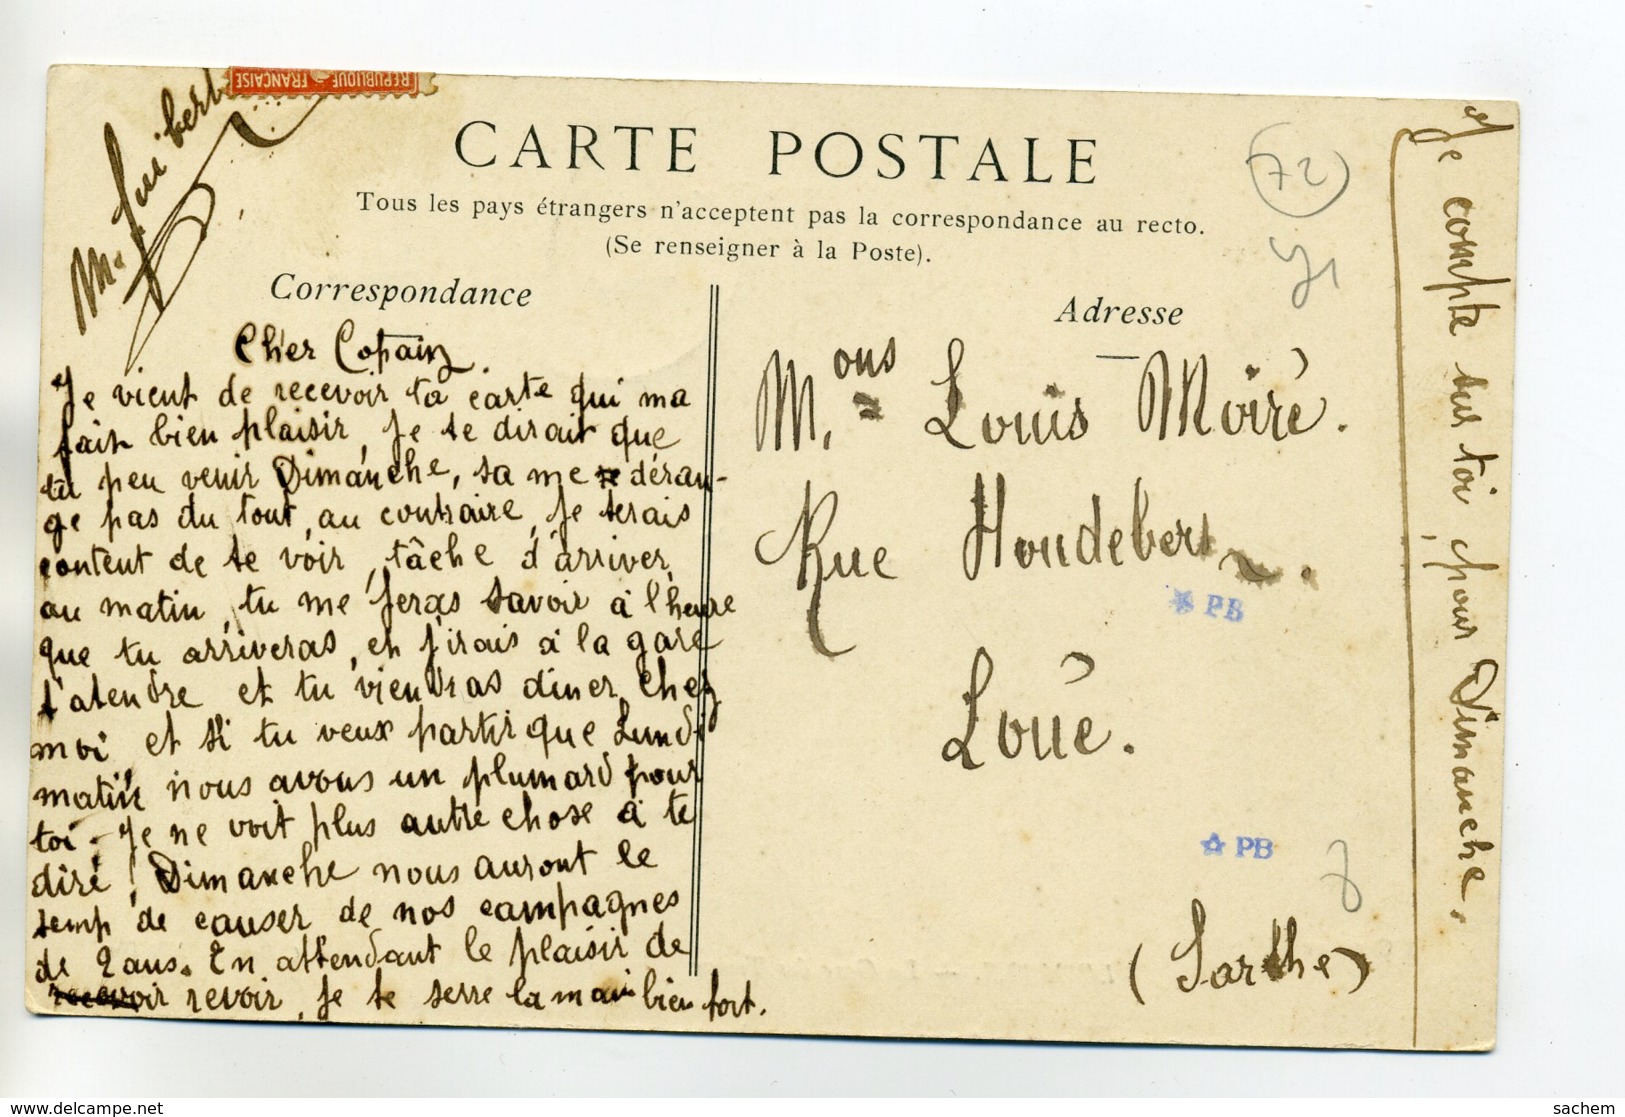 REPUBLIQUE FRANÇAISE
CARTE POSTALE
Tous les pays étrangers n'acceptent pas la correspondance au recto.
(Se renseigner à la Poste).
Correspondance
Cher Copain.
Je vient de recevoir ta carte qui ma
fait bien plaisir, Je te dirait que
tu peu venir Dimanche, sa me déran-
ge pas du tout, au contraire, Je serais
content de te voir, tâche d'arriver
au matin, tu me feras savoir à l'heure
que tu arriveras, et j'irais à la gare
t'atendre et tu viendras diner chez
moi, et si tu veux partir que Lundi
matin nous avons un plumard pour
toi. Je ne voit plus autre chose à te
dire, Dimanche nous auront le
temp de causer de nos campagnes
de 2 ans. En attendant le plaisir de
revoir, Je te serre la main bien fort.
Adresse
M.ons Louis Moiré.
Rue Houdebert.
Loué.
(Sarthe)
(72)
PB
PB
Je compte sur toi, pour Dimanche.
sachem